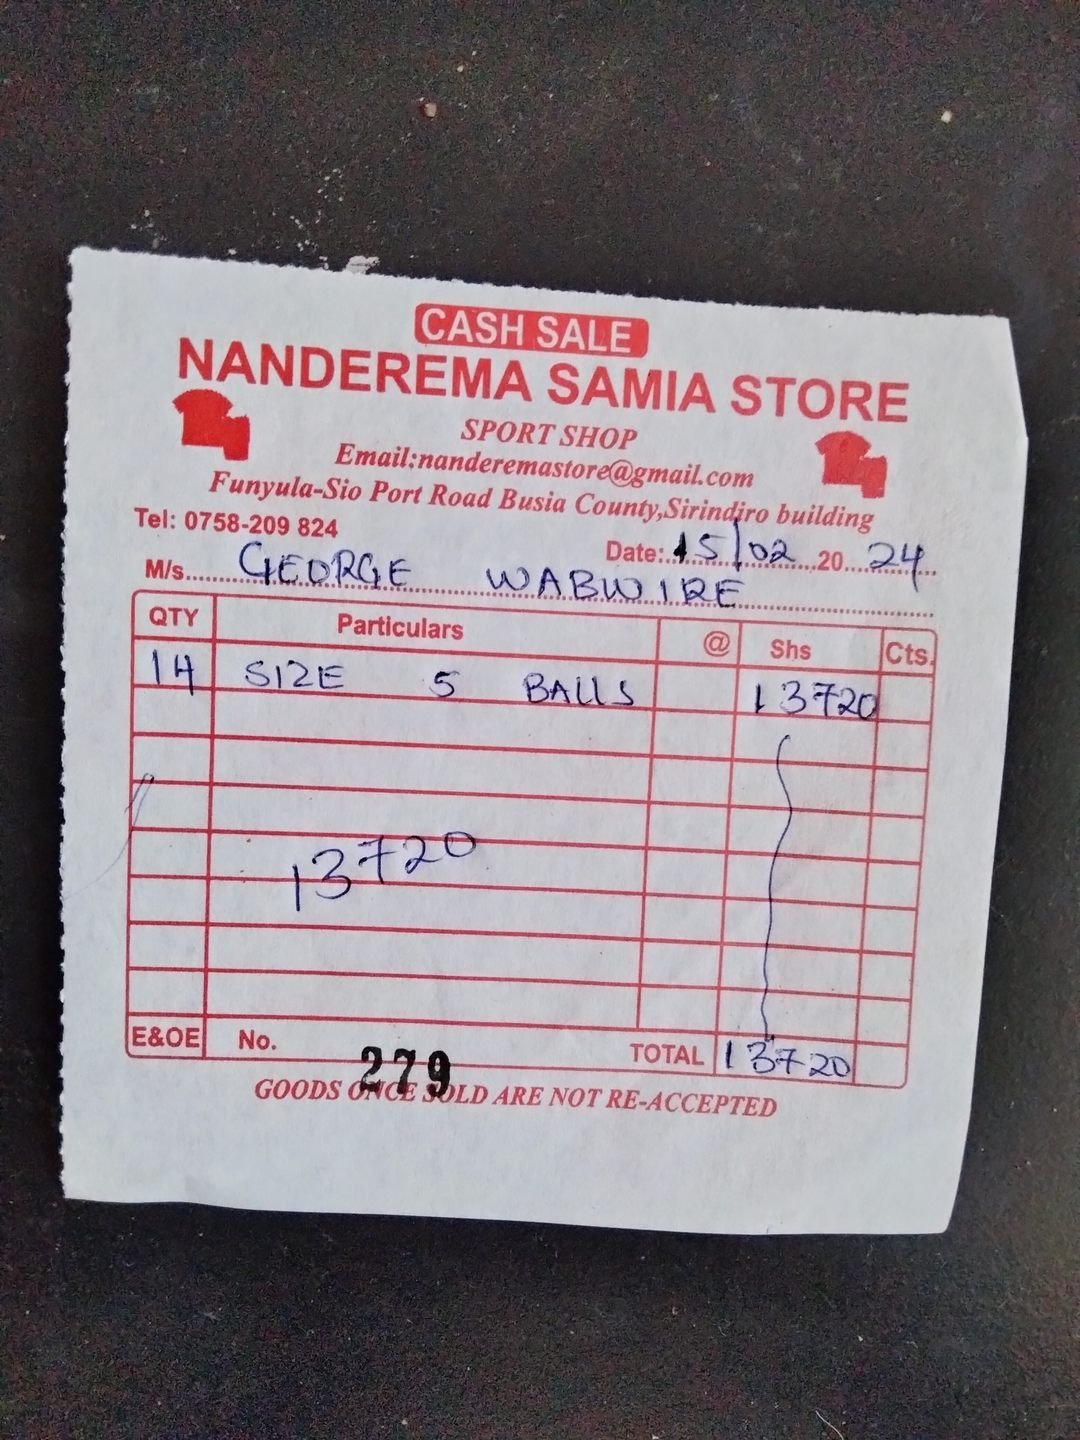 CASH SALE
NANDEREMA SAMIA STORE
SPORT SHOP
Email:nanderemastore@gmail.com
Funyula-Sio Port Road Busia County,Sirindiro building
Tel: 0758-209 824
Date:.15/02...20...24
M/s......GEORGE WABWIRE
QTY Particulars @ Shs Cts.
14 SIZE 5 BALLS 13720
13720
E&OE No. 279 TOTAL 13720
GOODS ONCE SOLD ARE NOT RE-ACCEPTED